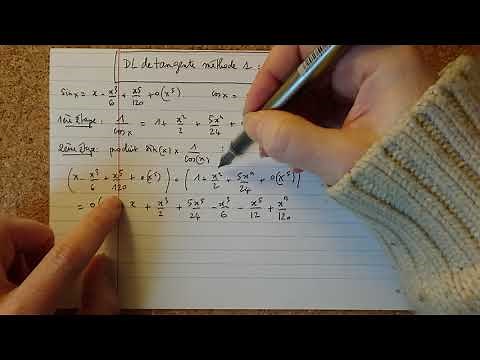 DL de tangente méthode 1 :
sin x = x - x³/6 + x⁵/120 + o(x⁵) cos x =
1ère étape : 1/cos x = 1 + x²/2 + 5x⁴/24 +
2ème étape : produit sin(x) × 1/cos(x) :
(x - x³/6 + x⁵/120 + o(x⁵)) × (1 + x²/2 + 5x⁴/24 + o(x⁵))
= o( x + x³/2 + 5x⁵/24 - x³/6 - x⁵/12 + x⁵/120